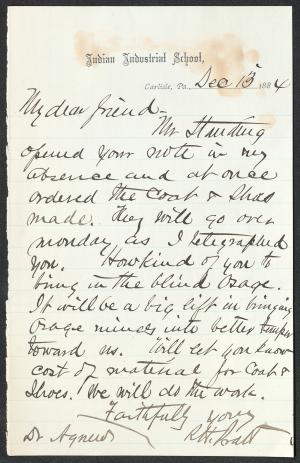 Indian Industrial School,
Carlisle, Pa. Dec 13 1884
My dear friend-
Mr Standing
opened your note in my
absence and at once
ordered the Coat & Shoes
made. They will go over
monday as I telegraphed
you. How kind of you to
bring in the blind Osage.
It will be a big lift in bringing
Osage minds into better temper
toward us. Will let you know
cost of material for Coat &
Shoes. We will do the work.
Faithfully yours
Dr Agnew RHPratt